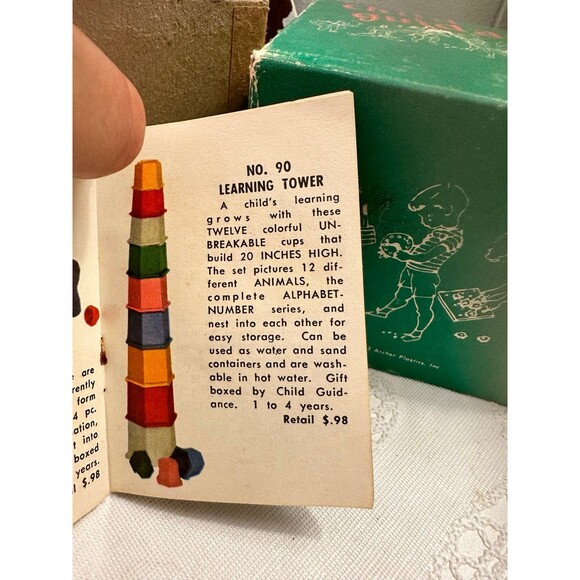 Child
Guida
NO. 90
LEARNING TOWER
A child's learning
grows with these
TWELVE colorful UN-
BREAKABLE cups that
build 20 INCHES HIGH.
The set pictures 12 dif-
ferent ANIMALS, the
complete ALPHABET-
NUMBER series, and
nest into each other for
easy storage. Can be
used as water and sand
containers and are wash-
able in hot water. Gift
boxed by Child Guid-
ance. 1 to 4 years.
Retail $.98
are
rently
form
4 pc.
ation,
t into
boxed
years.
l $.98
Archer Plastics, Inc